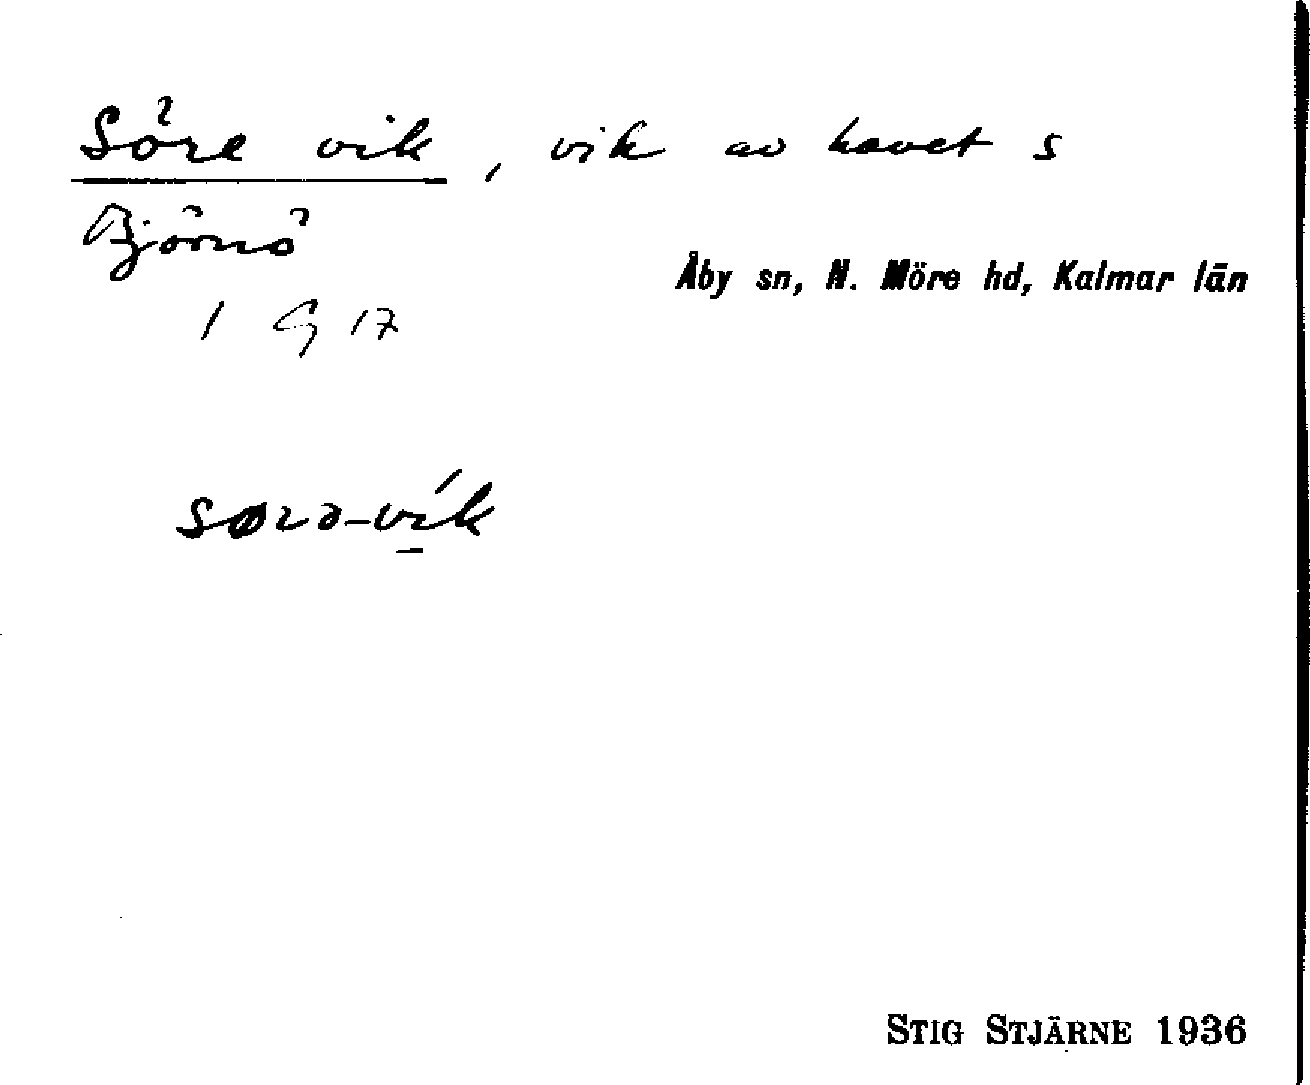 Söre vik, vik av havet s
Björnö
Åby sn, N. Möre hd, Kalmar län
1 G 17
sørə-vík
STIG STJÄRNE 1936